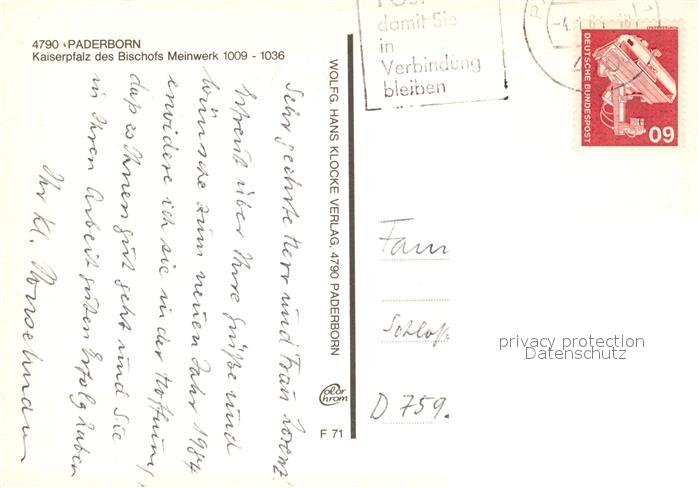 4790 PADERBORN
Kaiserpfalz des Bischofs Meinwerk 1009 - 1036
Sehr geehrte Herr und Frau Lorenz!
Erfreut über Ihre Grüße und
Wünsche zum neuen Jahr 1984
erwidere ich sie in der Hoffnung,
daß es Ihnen gut geht und Sie
in Ihren Arbeit guten Erfolg haben
Ihr Kl.
WOLFG. HANS KLOCKE VERLAG, 4790 PADERBORN
Color
Chrom
F 71
POST
damit Sie
in
Verbindung
bleiben
DEUTSCHE BUNDESPOST
60
Fam
Schloß
D 759.
privacy protection
Datenschutz